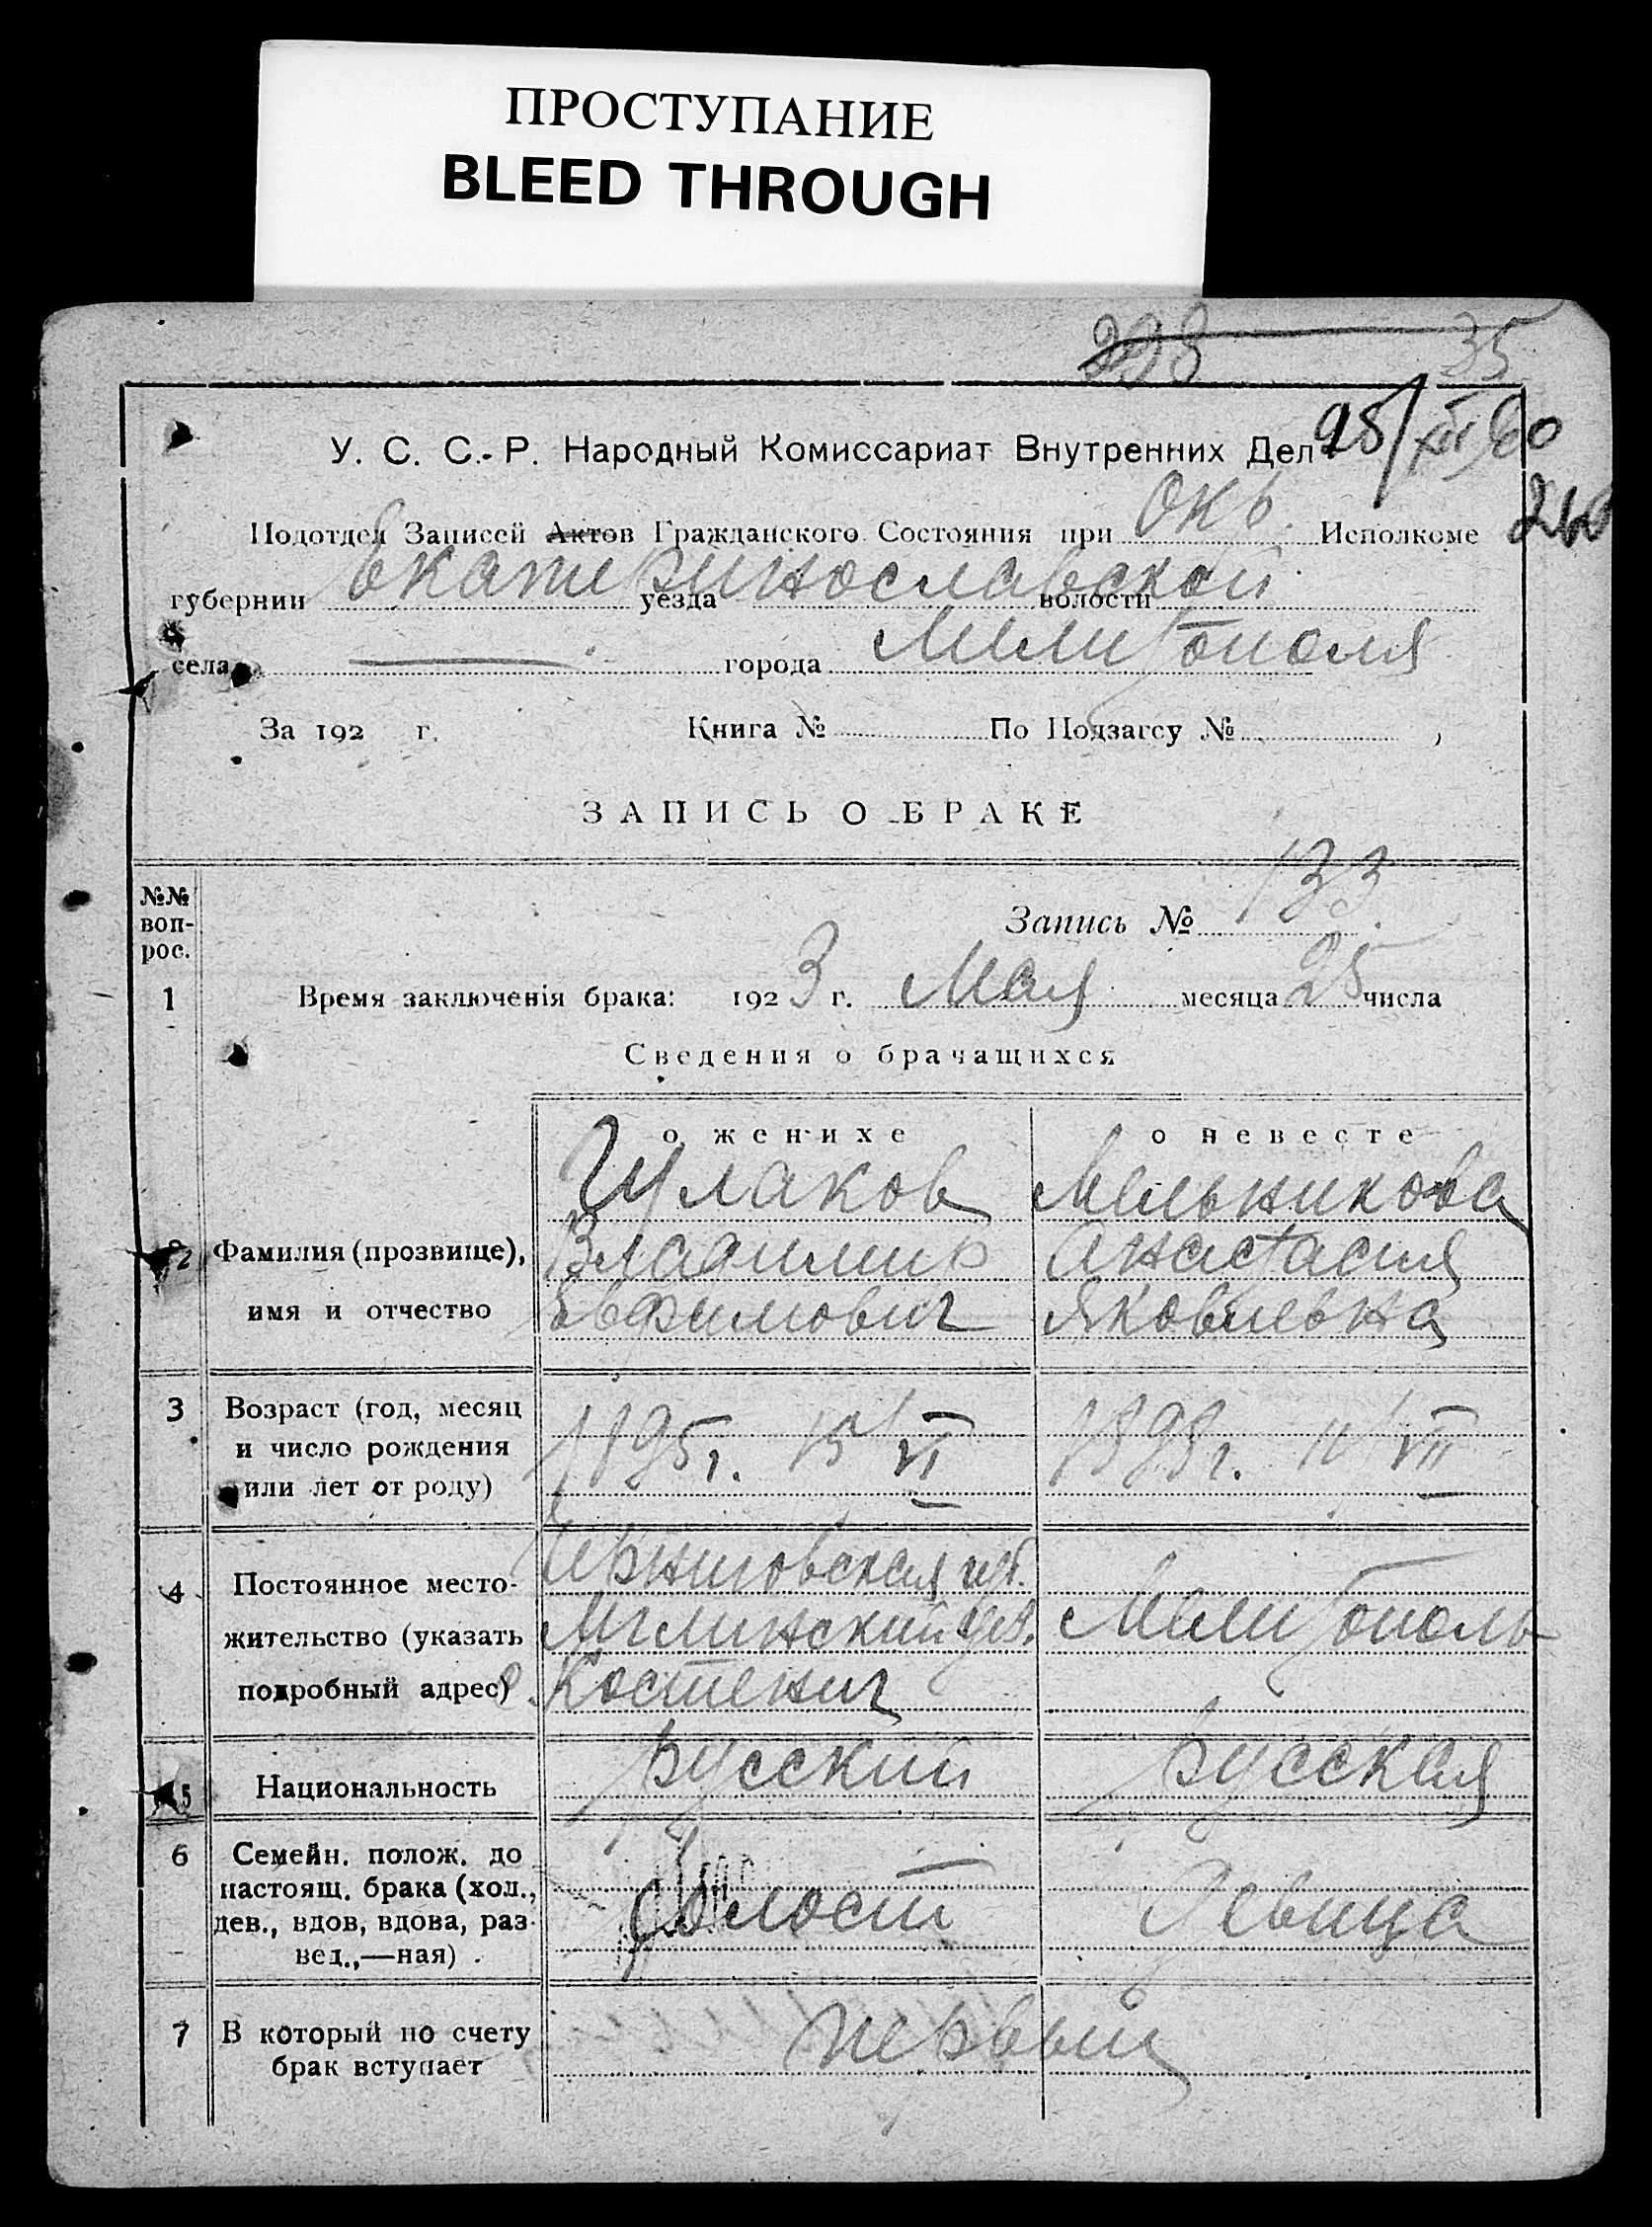 ПРОСТУПАНИЕ
BLEED THROUGH
298 35
У. С. С.-Р. Народный Комиссариат Внутренних Дел 25/XII 60
Подотдел Записей Актов Гражданского Состояния при Окр. Исполкоме
губернии Екатеринославской уезда волости
села города Мелитополя
За 192 г. Книга № По Подзагсу №
ЗАПИСЬ О БРАКЕ
№№ воп-рос.
Запись № 133
1 Время заключенія брака: 1923 г. Мая месяца 25 числа
Сведения о брачащихся
о женихе о невесте
Мельникова
2 Фамилия (прозвище), Владимир Анастасия
имя и отчество Евфимович Яковлевна
3 Возраст (год, месяц
и число рождения 1895 г. 15/VI 1898 г. VII
или лет от роду)
Черниговская губ.
4 Постоянное место-
жительство (указать Мглинский уез. Мелитополь
подробный адрес) с. Костенич
5 Национальность русский русская
6 Семейн. полож. до
настоящ. брака (хол., холост девица
дев., вдов, вдова, раз-
вед.,—ная)
7 В который по счету первый
брак вступает